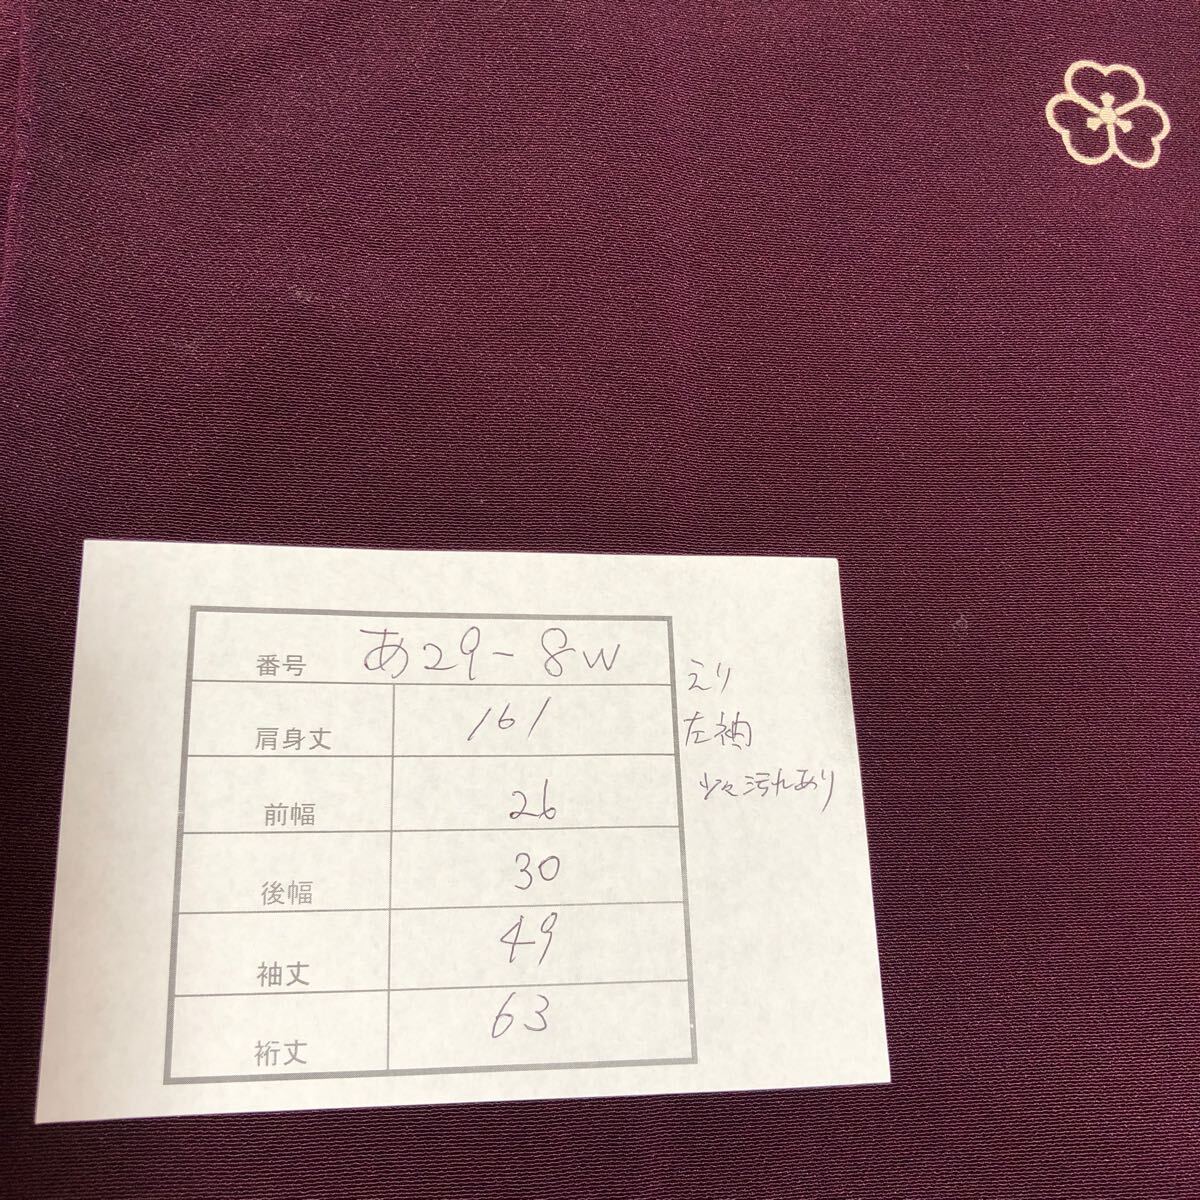 番号 あ29-8W
肩身丈 161
前幅 26
後幅 30
袖丈 49
裄丈 63
えり
左袖
少々汚れあり